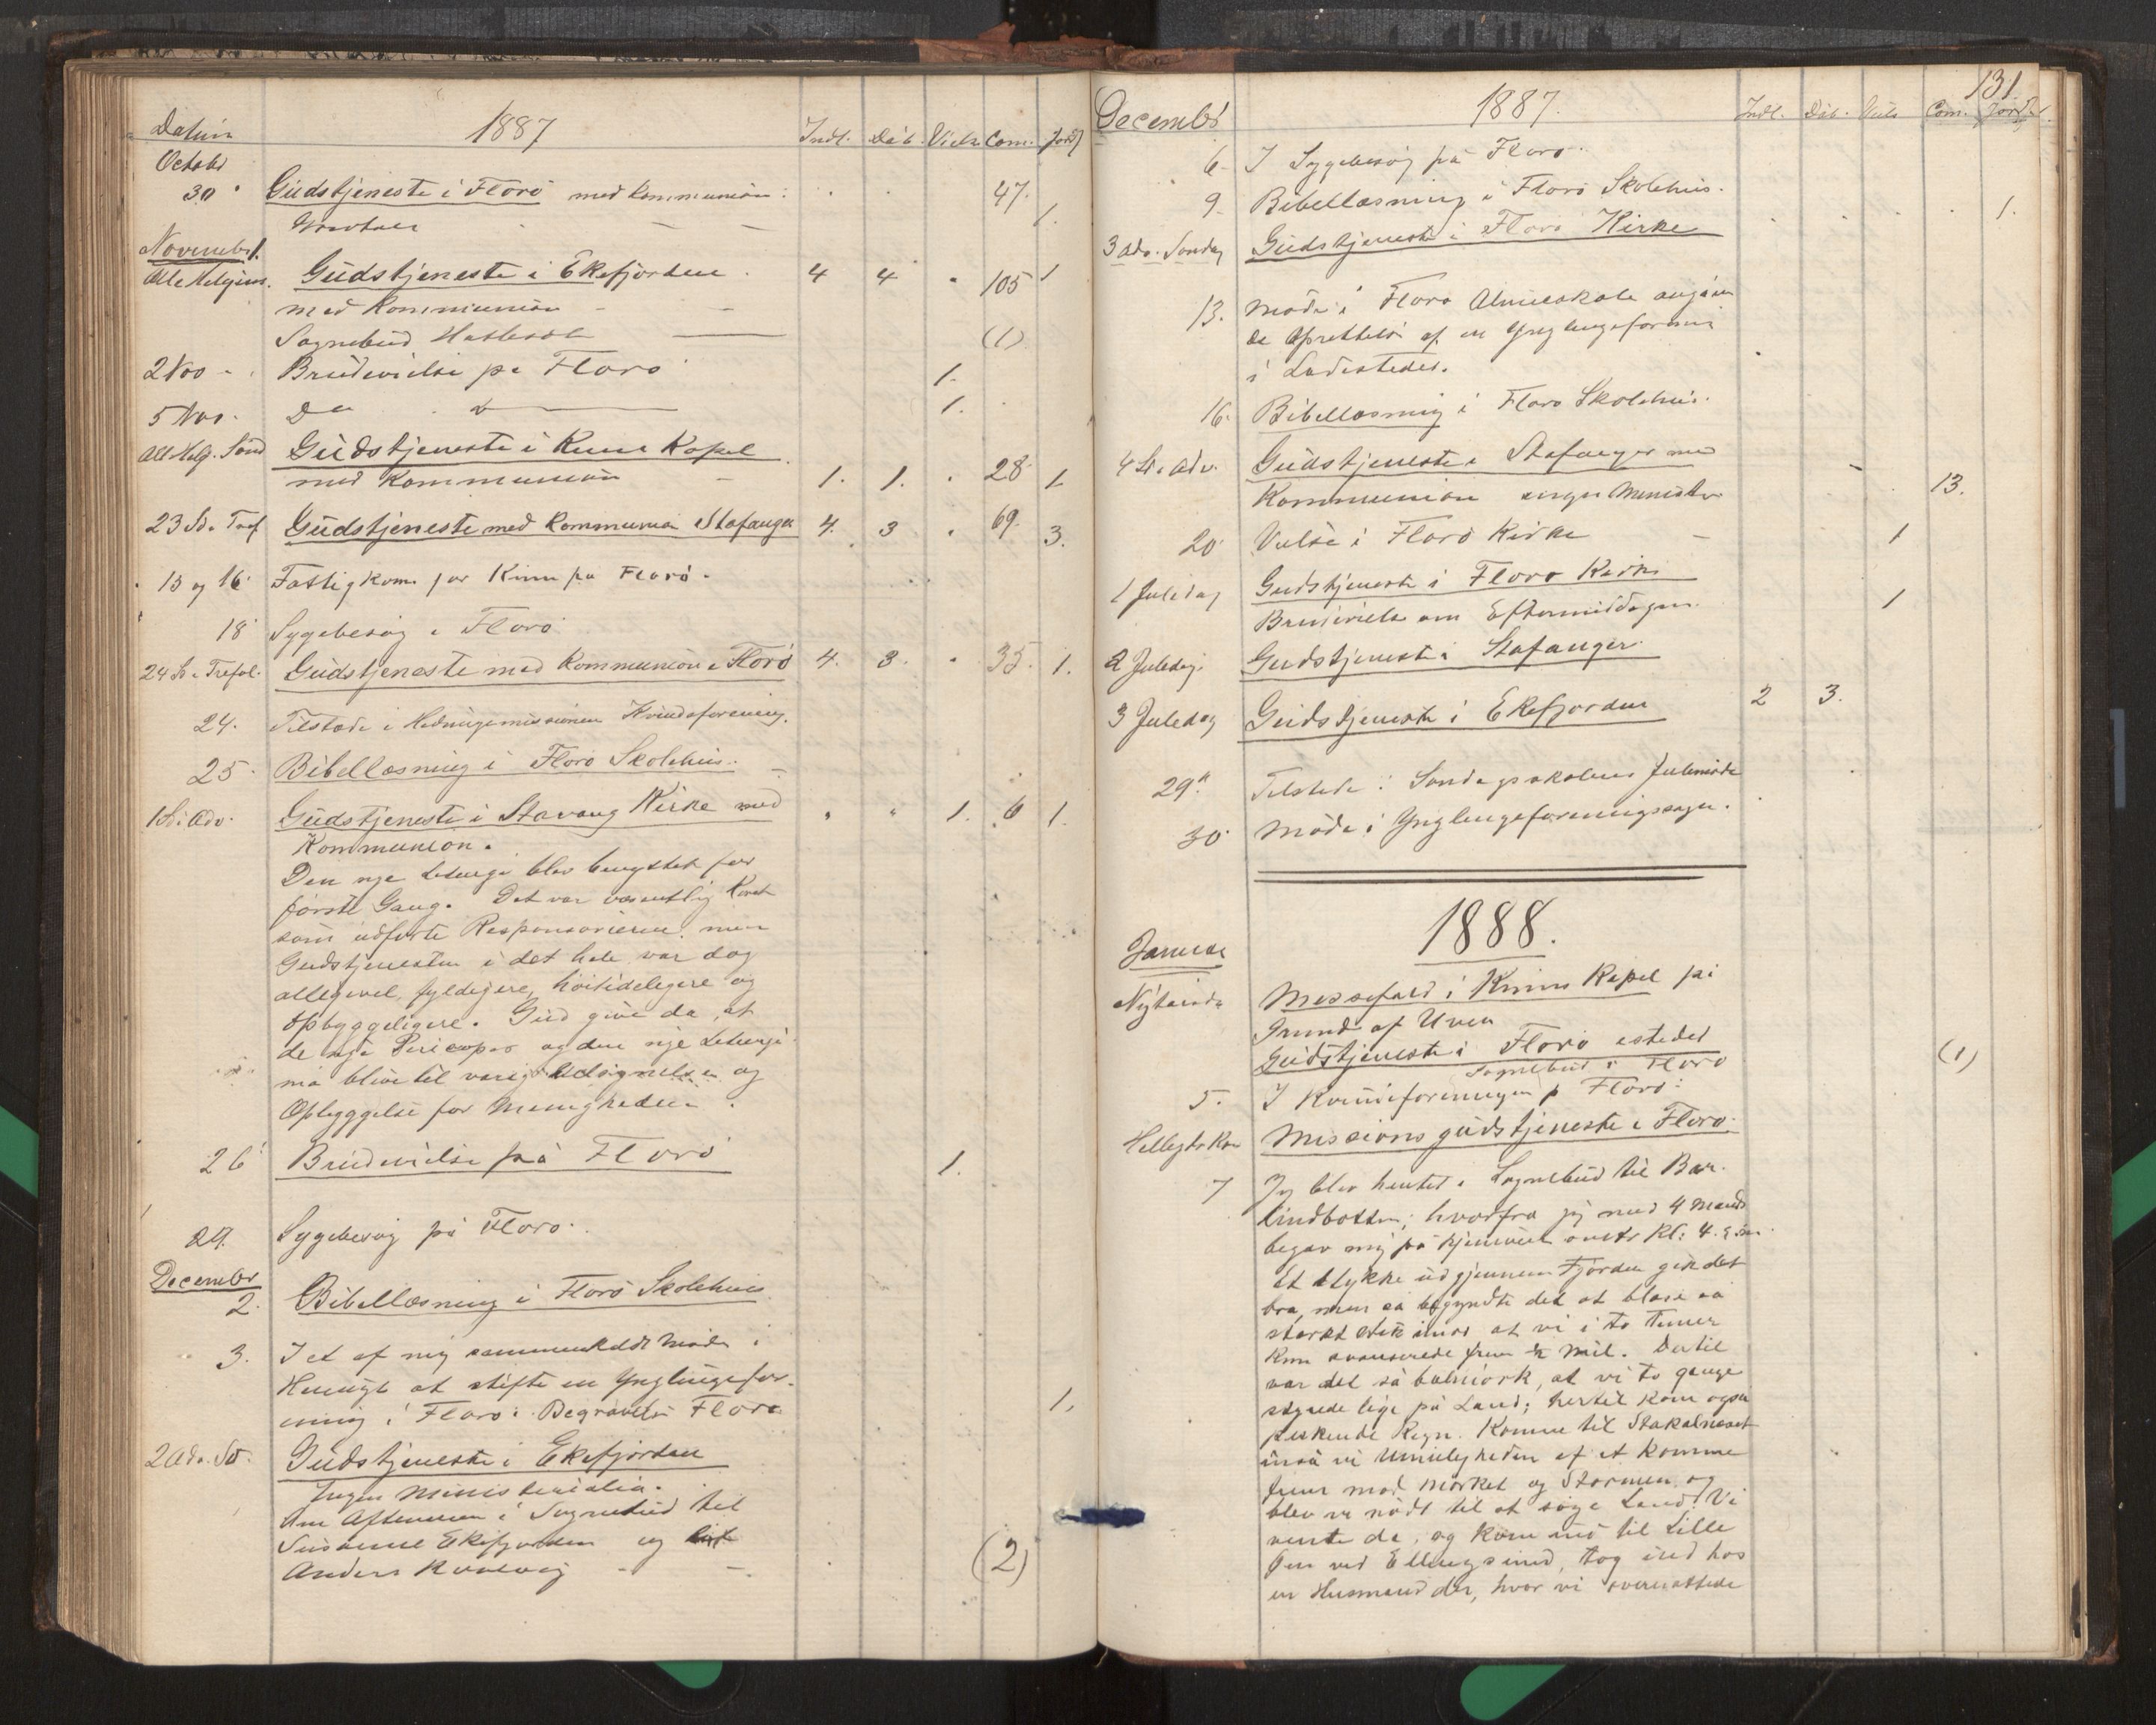 Datum 1887 Indl. Dåb. Viels. Com. Jordf
Octobr
30 Gudstjeneste i Florö med Kommunion: 47.
1.
Novembr 1.
Alle Helgens. Gudstjeneste i Ekefjorden. 4 4 " 105 1
med Kommunion
Sognebud (1)
2 Nov Brudevielse på Florö 1.
5 Nov. Do 1.
All Helg. Sönd Gudstjeneste i Kinn Kapel
med Kommunion 1. 1. " 28 1
23 S. e. Tref Gudstjeneste med Kommunion Stafanger 4. 3 " 69. 3.
13 og 16 Fattigkom. for Kinn på Florö.
18 Sygebesög i Florö
24 S. e. Trefol. Gudstjeneste med Kommunion i Florö 4. 3. " 35. 1.
24. Tilstede i Hedningemissionen Kvindeforening.
25. Bibellæsning i Florö Skolehus.
1 S. i Adv. Gudstjeneste i Stavang Kirke med " " 1. 6 1.
Kommunion.
Den nye Liturgi blev benyttet for
förste Gang. Det var væsentlig Koret
som udførte Responsorierne, men
Gudstjenesten i det hele var dog
allegevel fyldigere, höitideligere og
opbyggeligere. Gud give da, at
de nye Pericoper og den nye Liturgi
må blive til varig Velsignelse og
Opbyggelse for Menigheden.
26 Brudevielse på Florö 1.
29. Sygebesög på Florö.
December
2. Bibellæsning i Florö Skolehus
3. I et af mig sammenkaldt Möde i
Hensigt at stifte en Ynglingefor-
ening i Florö. Begravelse Florö 1.
2 Adv. Sö. Gudstjeneste i Ekefjorden
Ingen Ministerialia.
Om Aftenen i Sognebud til
Susanne Ekefjorden og
Anders (2)
131
December 1887. Indl. Dåb. Viels Com. Jordf.
6. I Sygebesög på Florö.
9. Bibellæsning i Florö Skolehus. 1.
3 Adv. Söndag Gudstjeneste i Florö Kirke
13. Möde i Florö Almueskole angåen
de Oprettelse af en Ynglingeforening
i Ladestedet.
16. Bibellæsning i Florö Skolehus.
4 S. i Adv. Gudstjeneste i Stafanger med
Kommunion ingen Minister. 13.
20 Vielse i Florö Kirke 1
1 Juledag Gudstjeneste i Florö Kirke
Brudevielse om Eftermiddagen. 1
2 Juledag. Gudstjeneste i Stafanger
3 Juledag Gudstjeneste i Ekefjorden 2 3.
29. Tilstede i Söndagsskolens Julemöde
30 Möde i Ynglingeforeningssagen.
1888.
Januar
Nytårsd. Messefald i Kinn Kapel på
Grund af Uveir
Gudstjeneste i Florö istedet
Sognebud i Florö (1)
5. I Kvindeforeningen p Florö.
Helligtrekon Missionsgudstjeneste i Florö.
7 Jeg blev hentet i Sognebud til Bar-
lindbotten; hvorfra jeg med 4 Mand
begav mig på Hjemveien Kl: 4. Em.
Et Stykke udgjennem Fjorden gik det
bra, men så begyndte det at blæse så
stærkt imod at vi i to Timer
kun avancerede frem ½ Mil. Dertil
var det så bælmörk, at vi to Gange
styrede lige på Land; hertil kom også
piskende Regn. Komne til Stakalneset
indså vi Umuligheden af at komme
frem mod Mörket og Stormen og
blev nödt til at söge Land. Vi
vendte da, og kom ind til Lille
Öen ved Ellingsund, tog ind hos
en Husmand der, hvor vi overnattede